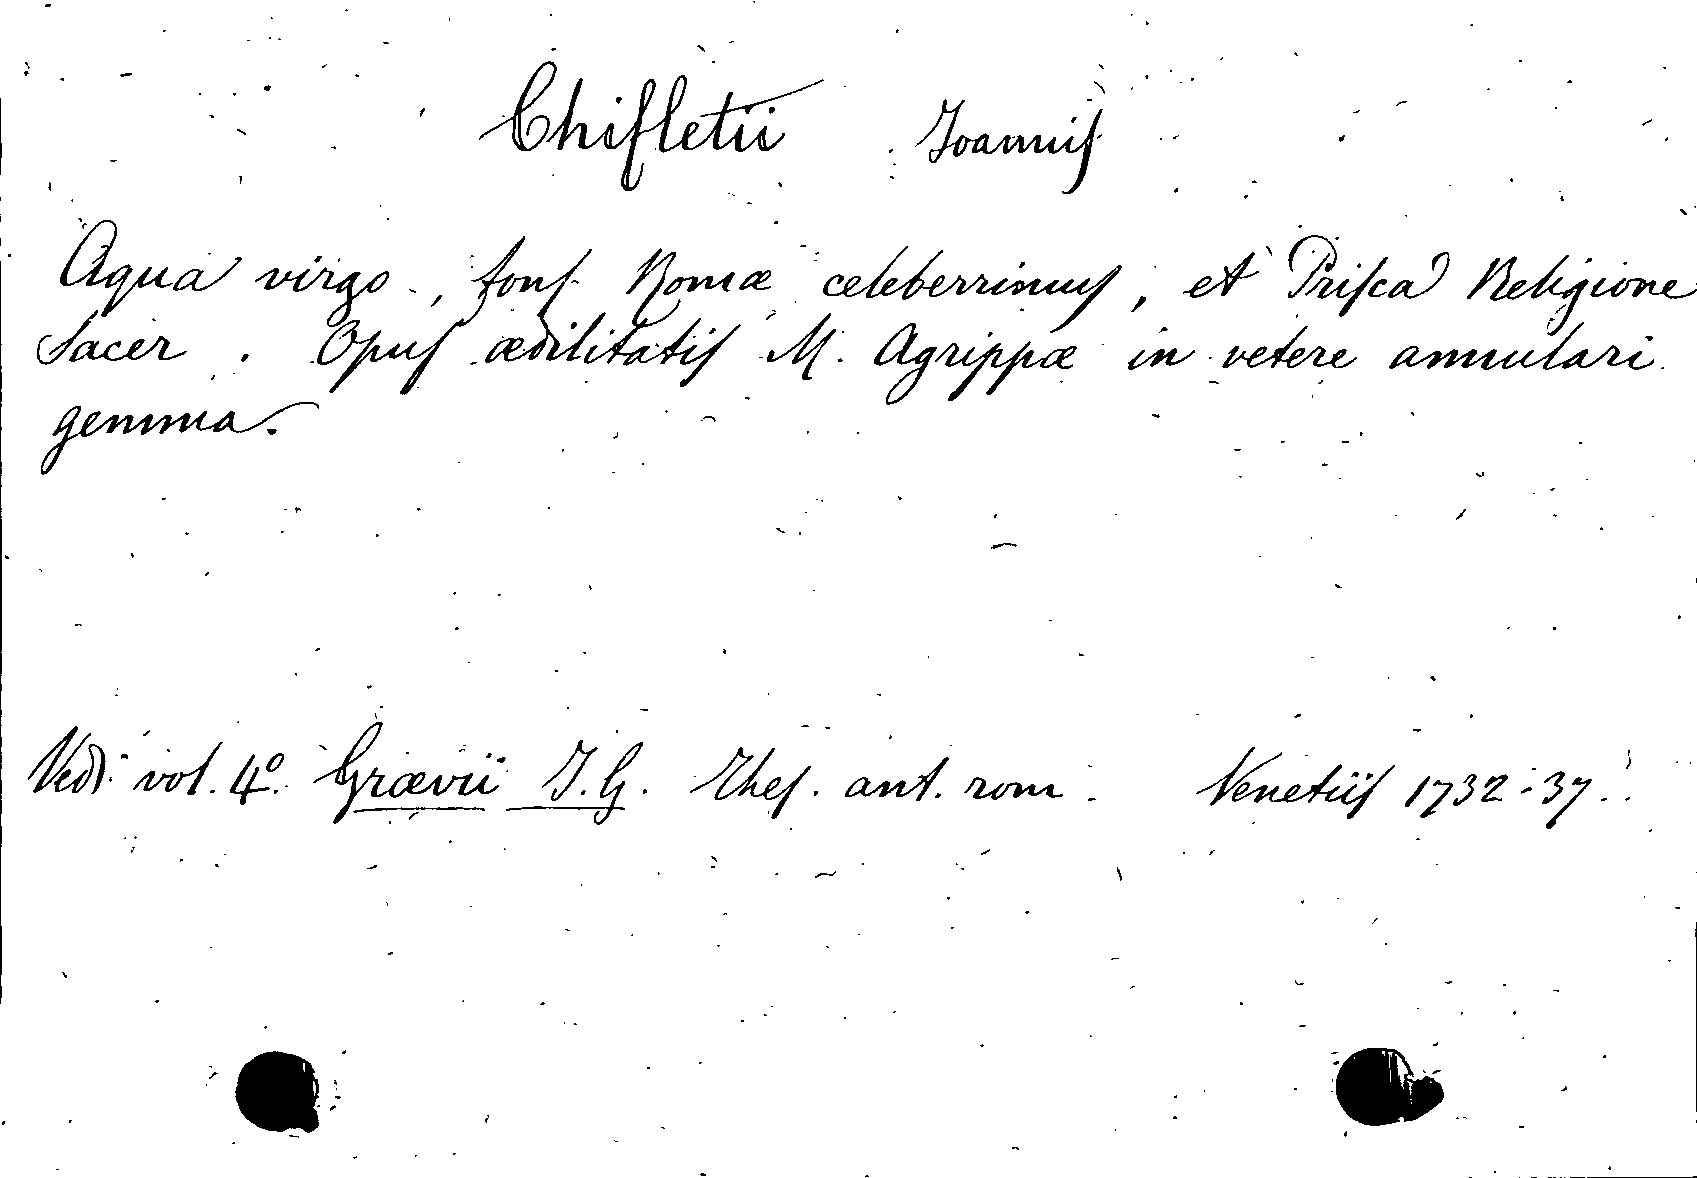 Chifletii Joannis
Aqua virgo, fons Romæ celeberrimus, et Prisca Religione
sacer. Opus ædilitatis M. Agrippæ in vetere annulari
gemma.
Vedi vol. 4º. Grævii J. G. Thes. ant. rom. Venetiis 1732-37.